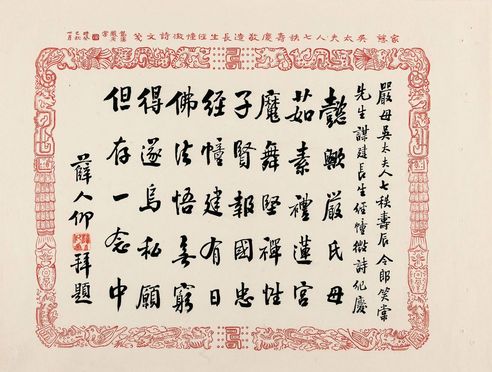 家慈吳太夫人七秩壽慶敬造長生經幢徵詩文箋
嚴母吳太夫人七秩壽辰 令郎笑棠
先生謀建長生經幢徵詩紀慶
懿歟嚴氏母
茹素禮蓮宮
魔舞堅禪性
子賢報國忠
經幢建有日
佛法悟無窮
得遂烏私願
但存一念中
薛人仰拜題